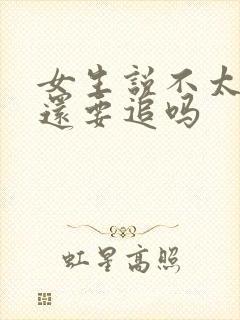 女生説不太
還要追吗
虹星高照